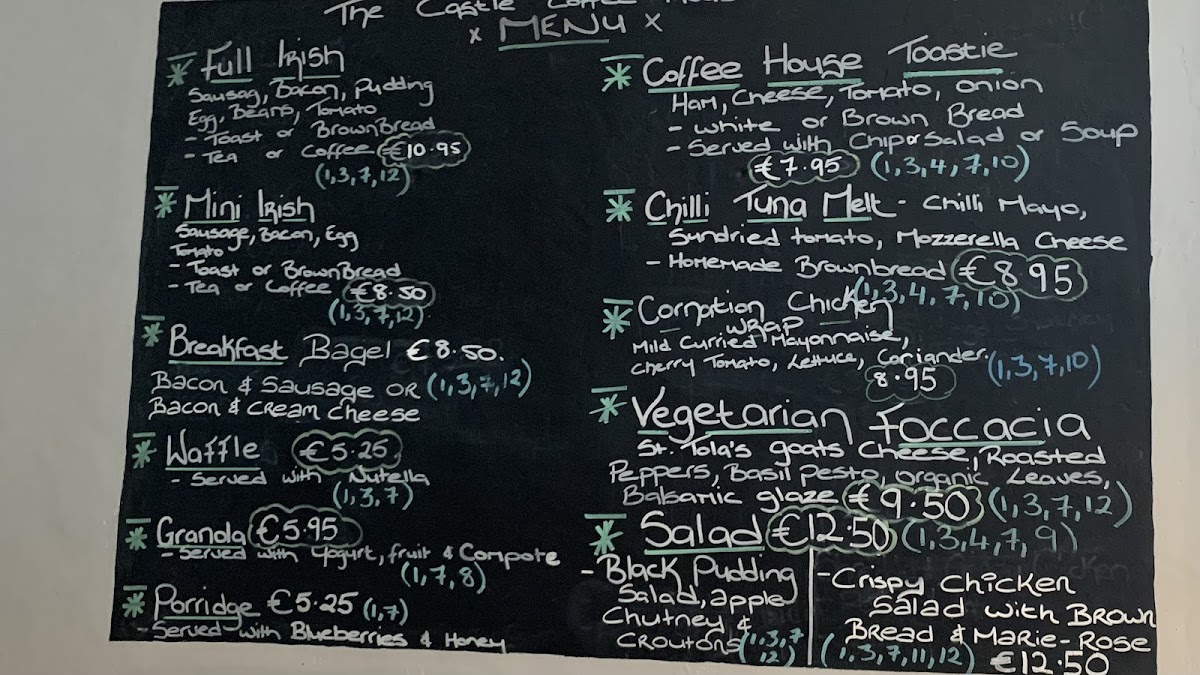 The Castle Coffee
x MENU x
* Full Irish
Sausag, Bacon, Pudding
Egg, Beans, Tomato
- Toast or BrownBread
- Tea or Coffee €10.95
(1,3,7,12)
* Mini Irish
Sausage, Bacon, Egg
Tomato
- Toast or BrownBread
- Tea or Coffee €8.50
(1,3,7,12)
* Breakfast Bagel €8.50.
Bacon & Sausage OR (1,3,7,12)
Bacon & Cream Cheese
* Waffle €5.25
- Served with Nutella
(1,3,7)
* Granola €5.95
- Served with Yogurt, fruit & Compote
(1,7,8)
* Porridge €5.25 (1,7)
- Served with Blueberries & Honey
* Coffee House Toastie
Ham, Cheese, Tomato, onion
- White or Brown Bread
- Served with Chip or Salad or Soup
€7.95 (1,3,4,7,10)
* Chilli Tuna Melt - Chilli Mayo,
Sundried tomato, Mozzerella Cheese
- Homemade Brownbread €8.95
(1,3,4,7,10)
* Cornation Chicken
wrap
Mild Curried Mayonnaise,
Cherry Tomato, Lettuce, Coriander. (1,3,7,10)
8.95
* Vegetarian Foccacia
St. Tola's goats Cheese, Roasted
Peppers, Basil pesto, organic Leaves,
Balsamic glaze €9.50 (1,3,7,12)
* Salad €12.50 (1,3,4,7,9)
- Black Pudding
Salad, apple
Chutney &
Croutons (1,3,7
12)
- Crispy Chicken
Salad with Brown
Bread & Marie-Rose
(1,3,7,11,12) €12.50